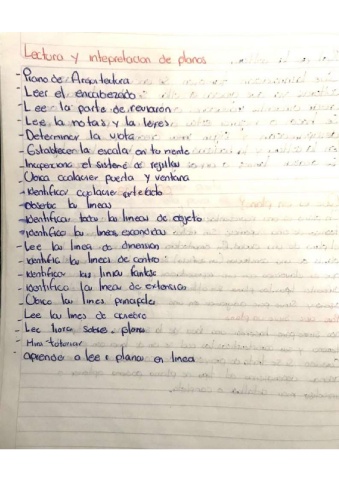 Lectura y intepretacion de planos
- Plano de Arquitectura
- Leer el encabezado
- Lee la parte de revision
- Lee la notas y la leyes
- Determinar la vista
- Establecer la escala en tu mente
- el sistema de rejillas
- Ubica cualquier puerta y ventana
- identificar cualquier
- Observe las lineas
- identificar todo las lineas de objeto
- identifica las lineas escondidas
- Lee las linea de dimension
- identifica las linea de centro
- identifica las linea
- identifica las lineas de extension
- Ubica las lines
- Lee las lines de
- Lee libros sobre planos
- Mira tutorial
- aprende a lee planos en linea